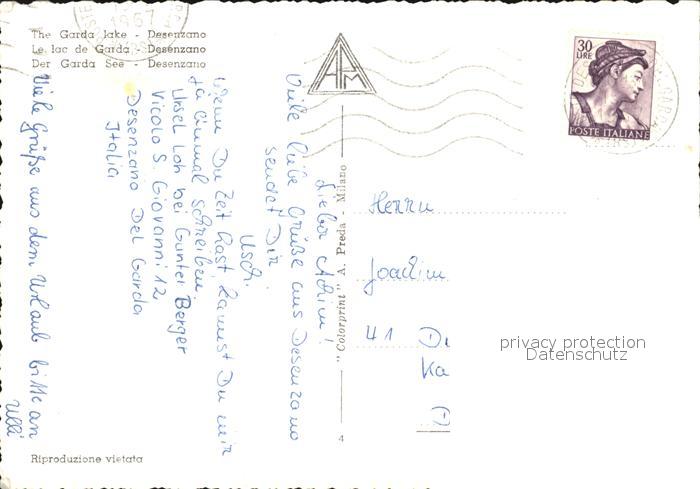 The Garda lake - Desenzano
Le lac de Garda - Desenzano
Der Garda See - Desenzano
1967
30
LIRE
POSTE ITALIANE
Lieber Achim!
Viele liebe Grüße aus Desenzano
sendet Dir
Usch.
Wenn Du Zeit hast, kannst Du mir
ja einmal schreiben.
Ursel Loh bei Gunter Berger
Vicolo S. Giovanni 12
Desenzano Del Garda
Italia
Viele Grüße aus dem Urlaub bitte an
Ulli
"Colorprint" A. Preda - Milano
Herrn
Joachim
41 D
Ka
privacy protection
Datenschutz
4
Riproduzione vietata